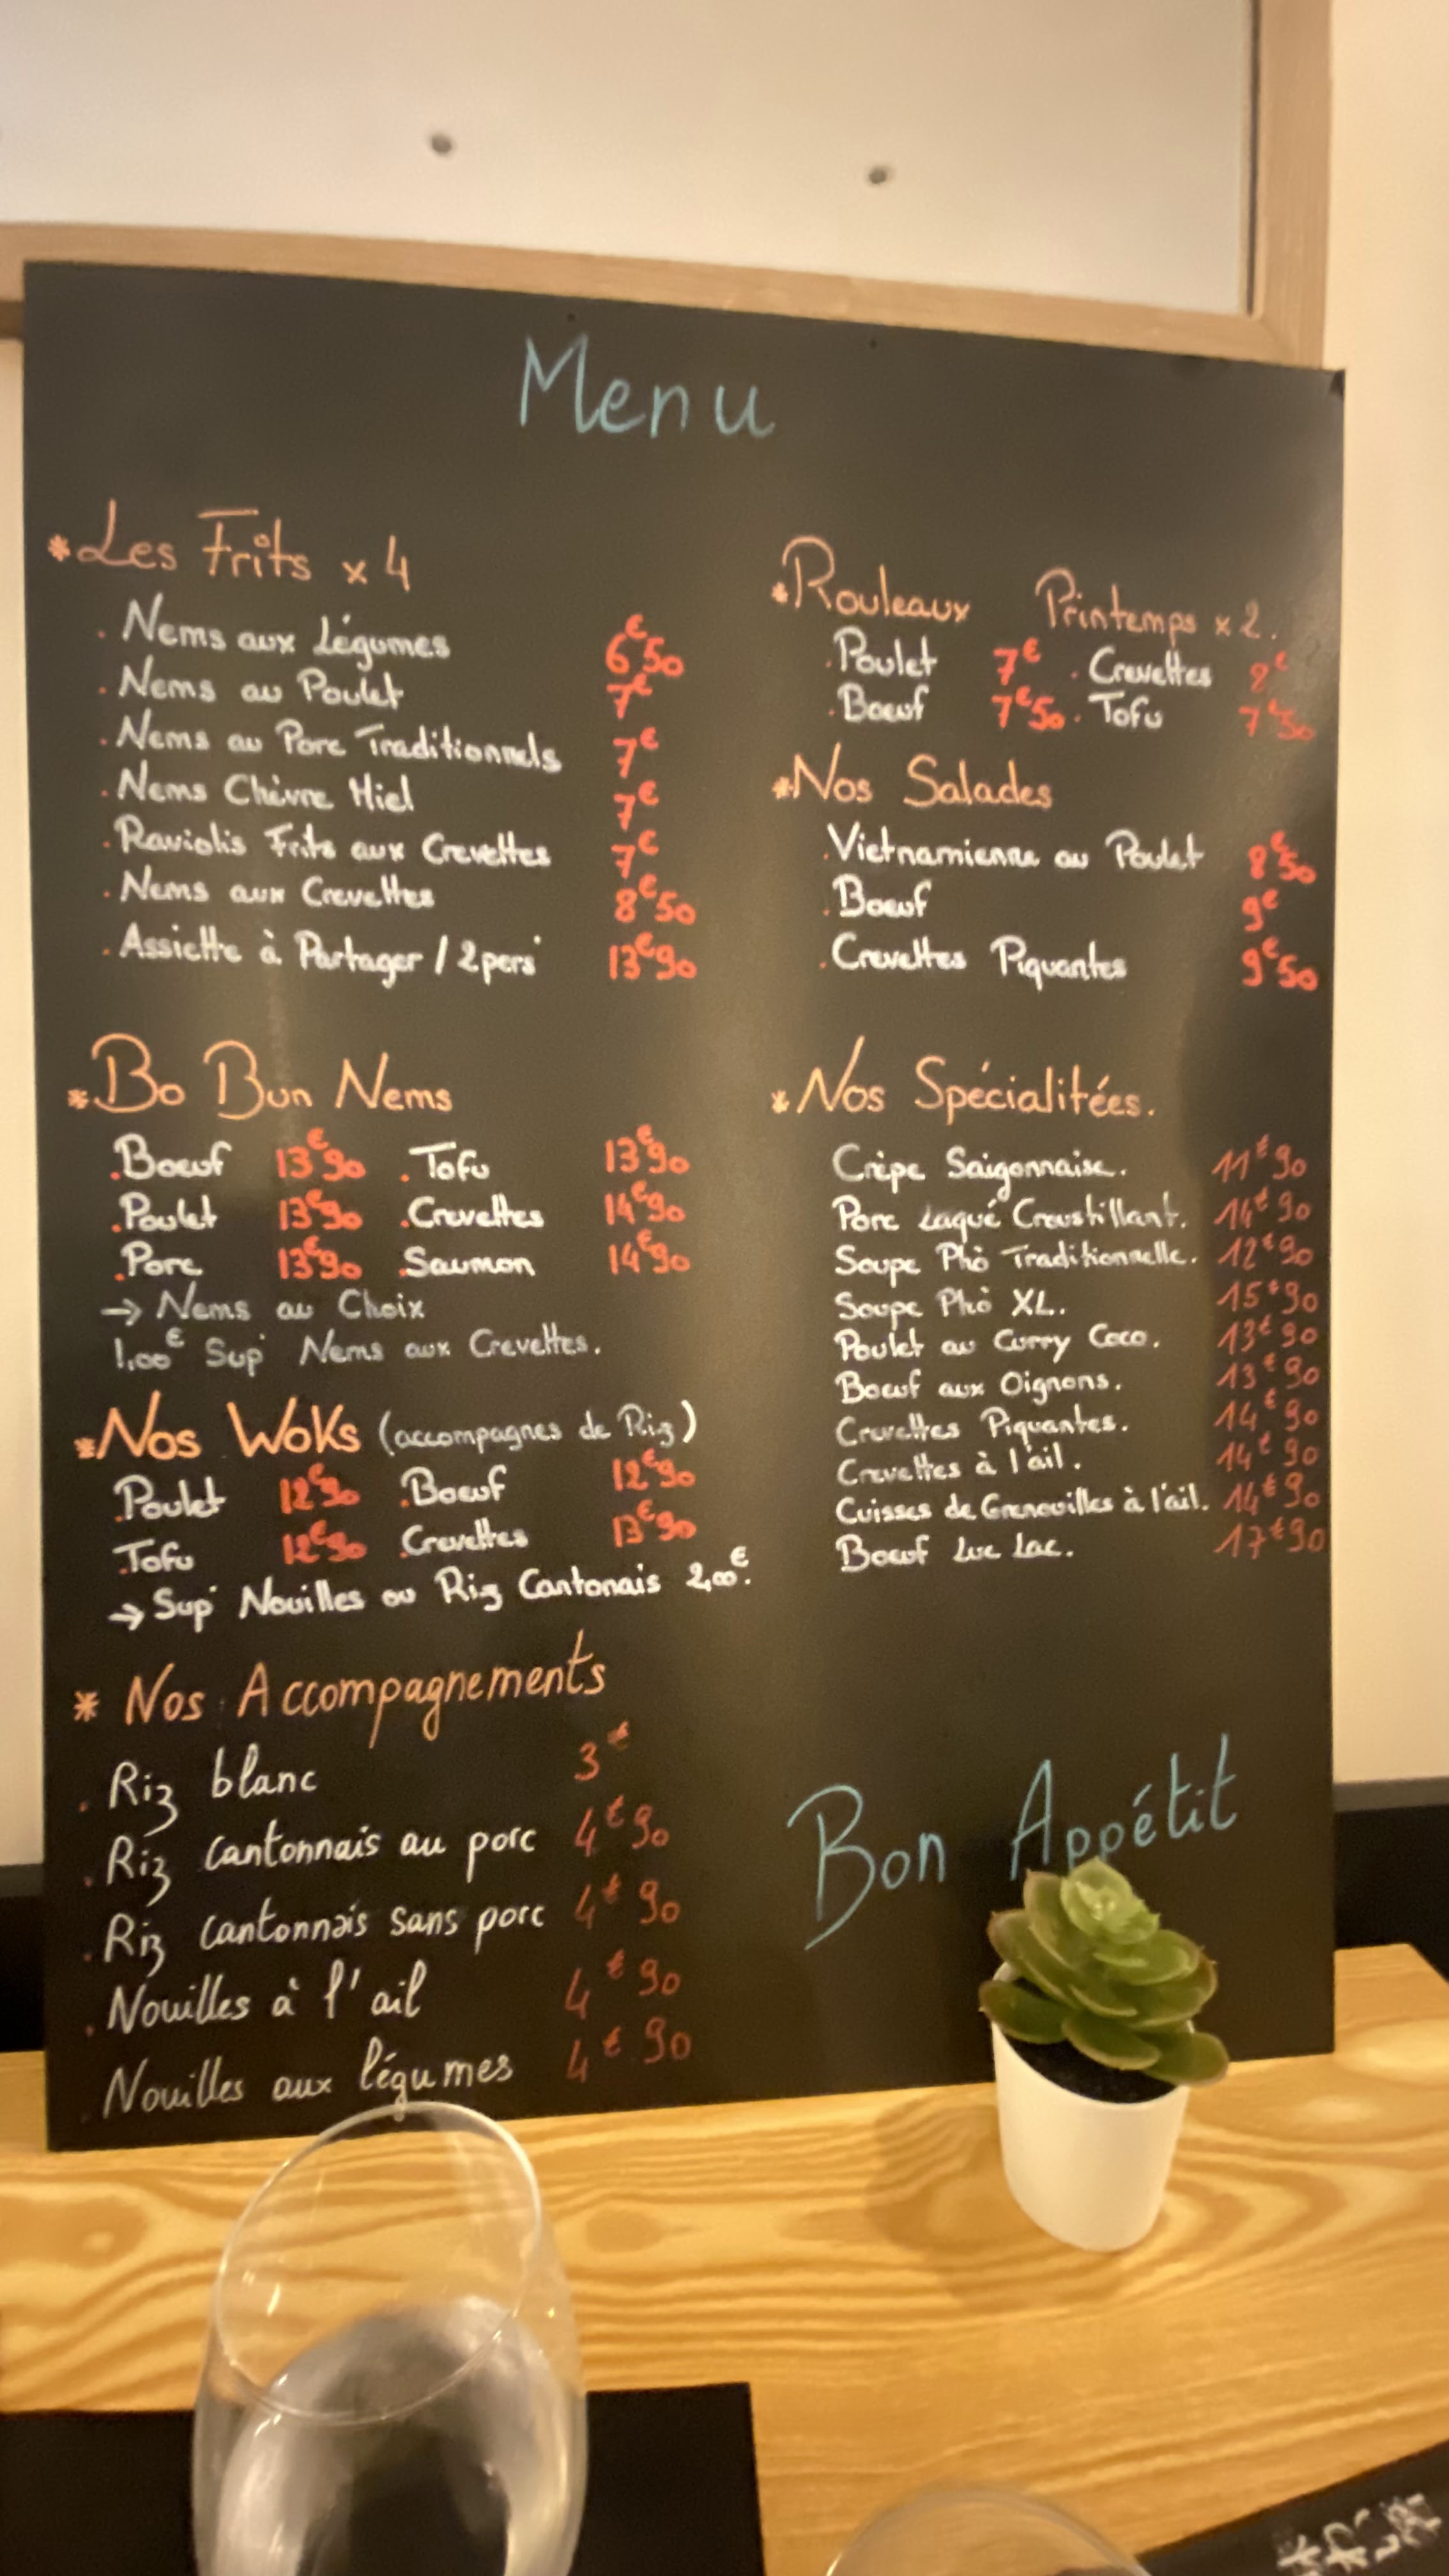 Menu
*Les Frits x 4
. Nems aux Légumes 6€50
. Nems au Poulet 7€
. Nems au Porc Traditionnels 7€
. Nems Chèvre Miel 7€
. Raviolis Frits aux Crevettes 7€
. Nems aux Crevettes 8€50
. Assiette à Partager / 2pers' 13€90
*Bo Bun Nems
.Boeuf 13€90 .Tofu 13€90
.Poulet 13€90 .Crevettes 14€90
.Porc 13€90 .Saumon 14€90
→ Nems au Choix
1,00€ Sup' Nems aux Crevettes.
*Nos Woks (accompagnes de Riz)
.Poulet 12€90 .Boeuf 12€90
.Tofu 12€90 .Crevettes 13€90
→ Sup' Nouilles ou Riz Cantonais 2,00€.
* Nos Accompagnements
. Riz blanc 3€
. Riz cantonnais au porc 4€90
. Riz cantonnais sans porc 4€90
. Nouilles à l'ail 4€90
. Nouilles aux légumes 4€90
*Rouleaux Printemps x 2.
.Poulet 7€ . Crevettes 8€
.Boeuf 7€50 . Tofu 7€50
*Nos Salades
.Vietnamienne au Poulet 8€50
.Boeuf 9€
.Crevettes Piquantes 9€50
*Nos Spécialitées.
Crêpe Saigonnaise. 11€90
Porc Laqué Croustillant. 14€90
Soupe Phở Traditionnelle. 12€90
Soupe Phở XL. 15€90
Poulet au Curry Coco. 13€90
Boeuf aux Oignons. 13€90
Crevettes Piquantes. 14€90
Crevettes à l'ail. 14€90
Cuisses de Grenouilles à l'ail. 14€90
Boeuf Luc Lac. 17€90
Bon Appétit